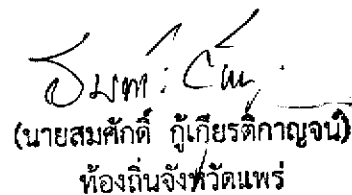 (นายสมศักดิ์ กู้เกียรติกาญจน์)
ท้องถิ่นจังหวัดแพร่